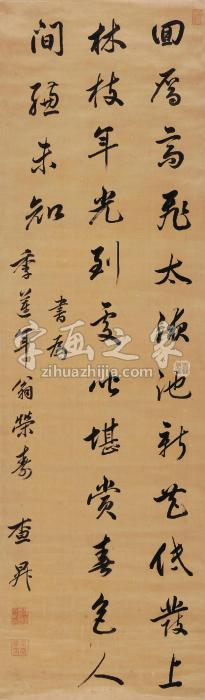 回鴈高飛太液池新花低發上
林枝年光到處皆堪賞春色人
間總未知
書為
季蓮年翁榮壽
查昇
字画之家
www.zihuazhijia.com